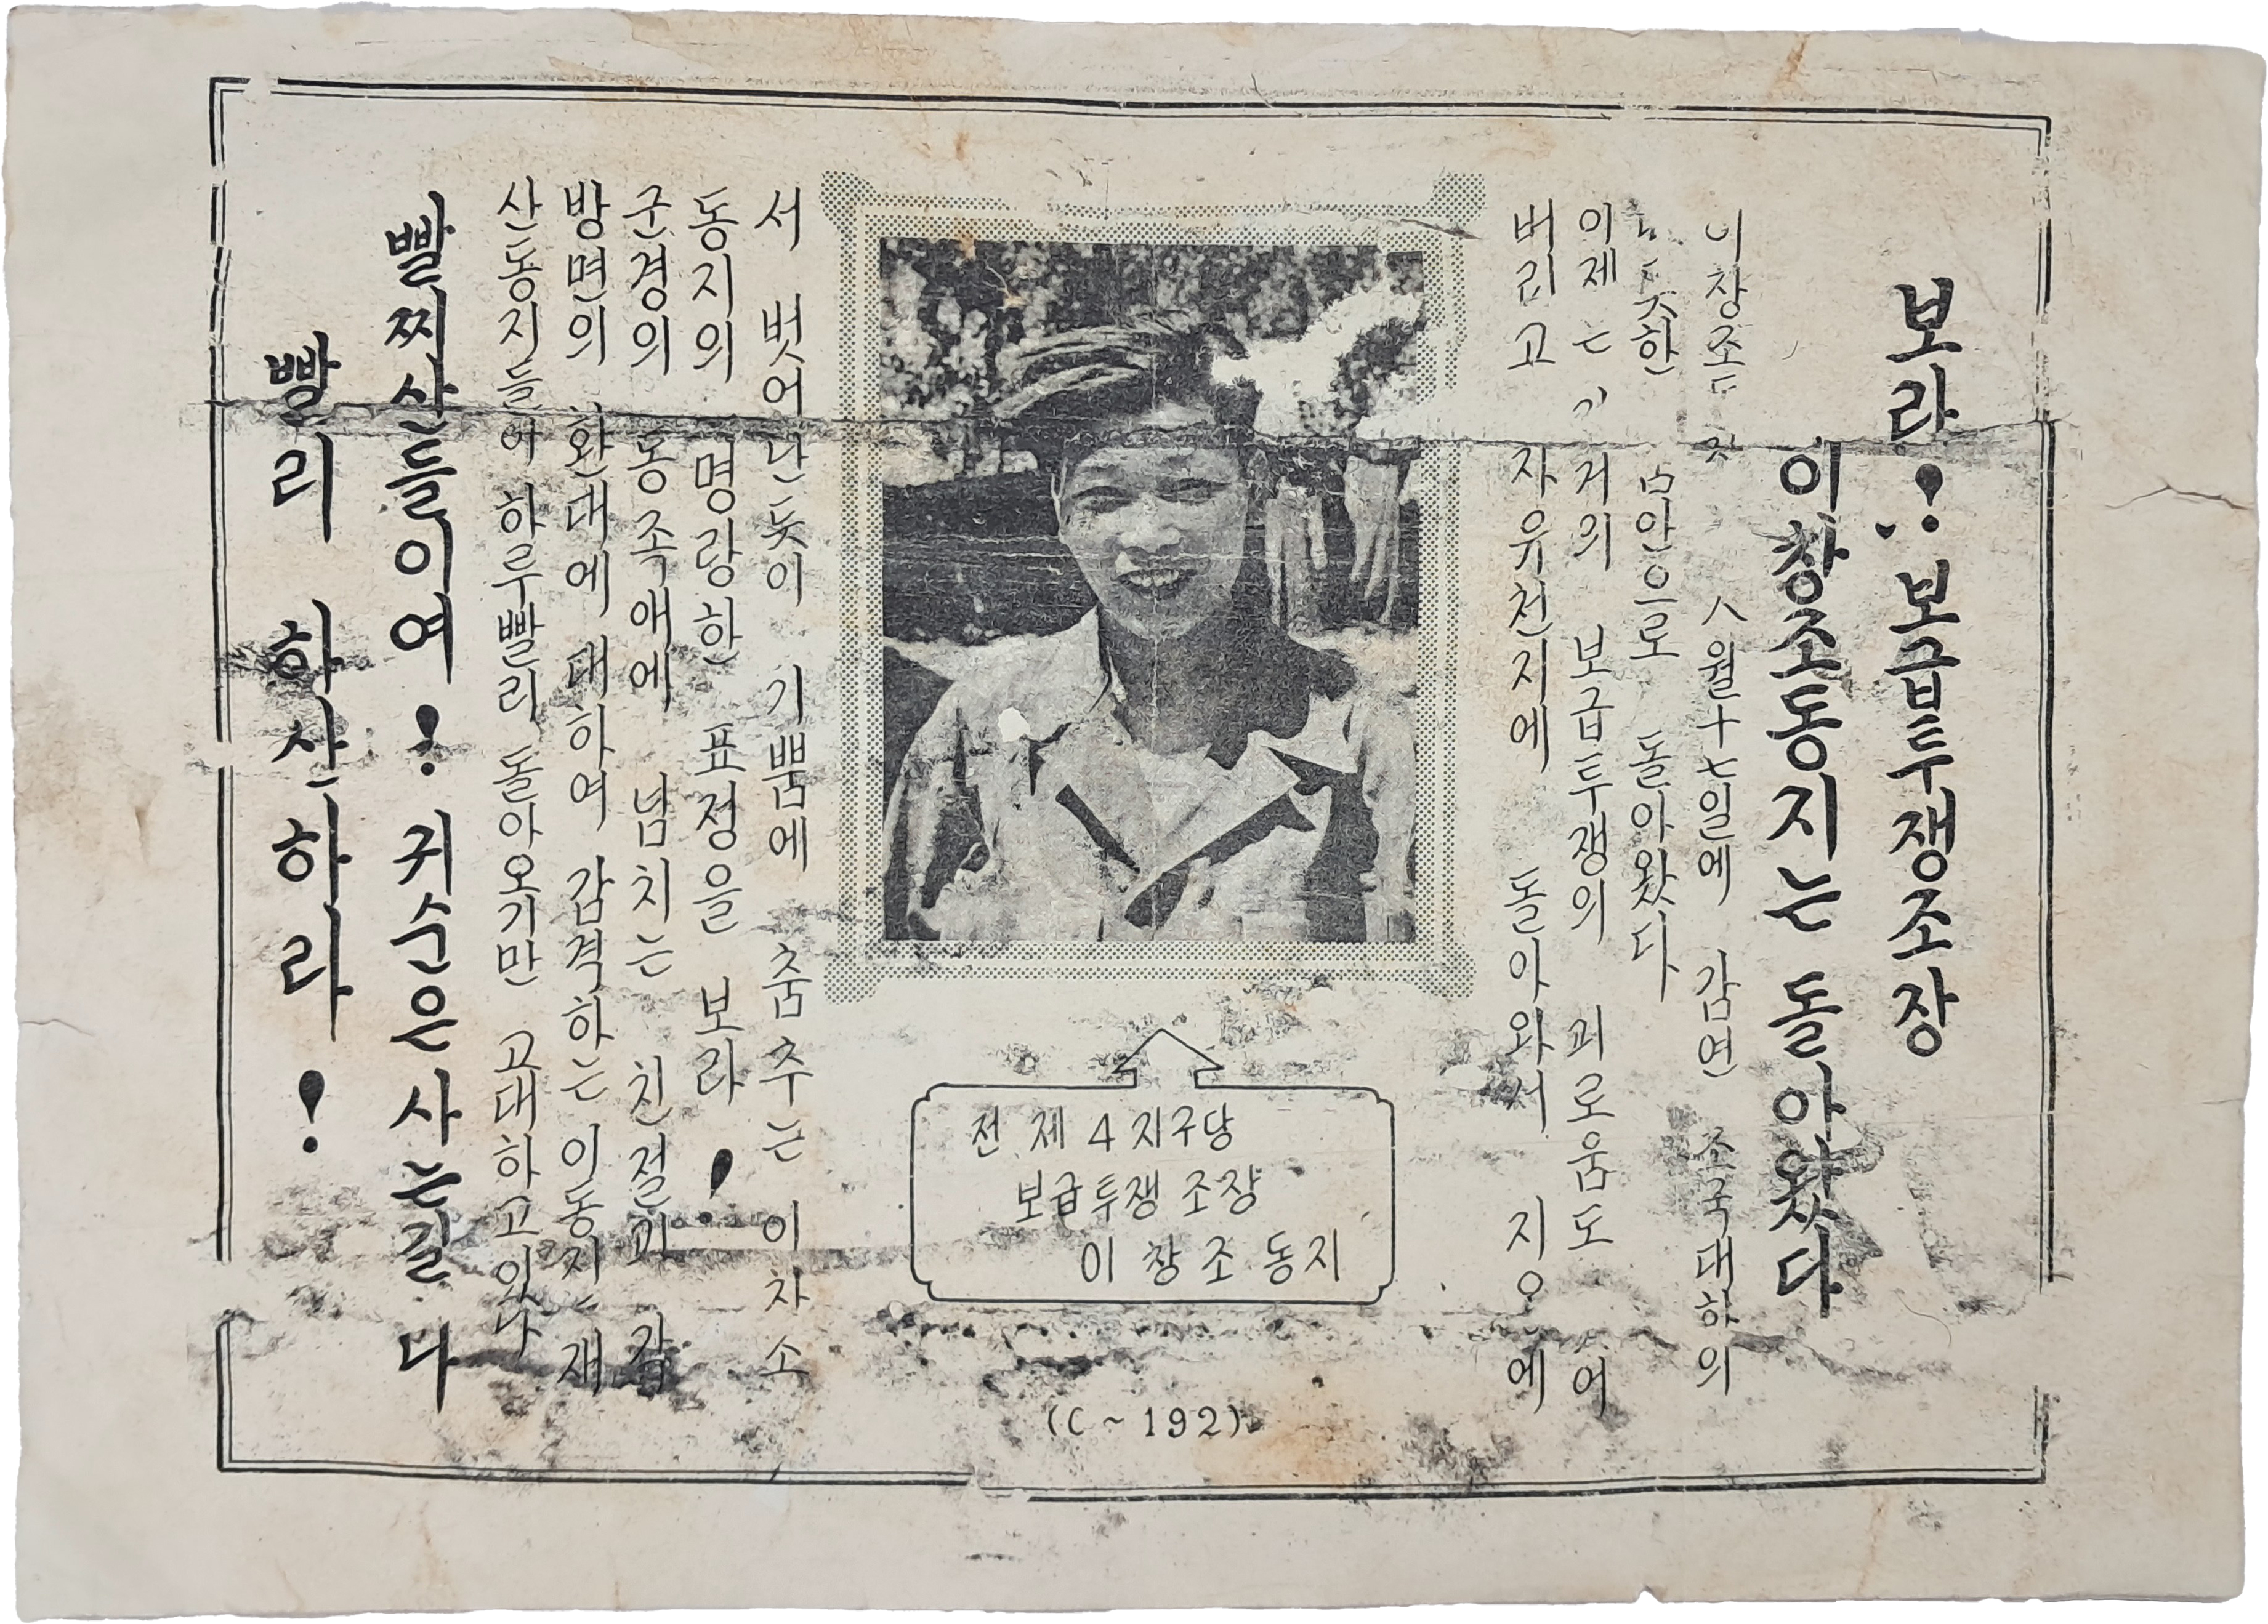 보라! 보급투쟁조장
이창조동지는 돌아왔다
이창조 八월十七일에 감연 조국대하의
품안으로 돌아왔다
이제는 과거의 보급투쟁의 괴로움도
버리고 자유천지에 돌아와서 지옥에
전 제 4 지구당
보급투쟁 조장
이 창 조 동지
(C~192)
서 벗어난듯이 기쁨에 춤추는 이창소
동지의 명랑한 표정을 보라!
군경의 동족애에 넘치는 친절과 각
방면의 환대에 대하여 감격하는 이동지는 재
산동지들이 하루빨리 돌아오기만 고대하고있다
빨찌산들이여! 귀순은 사는길이다
빨리 하산하라!